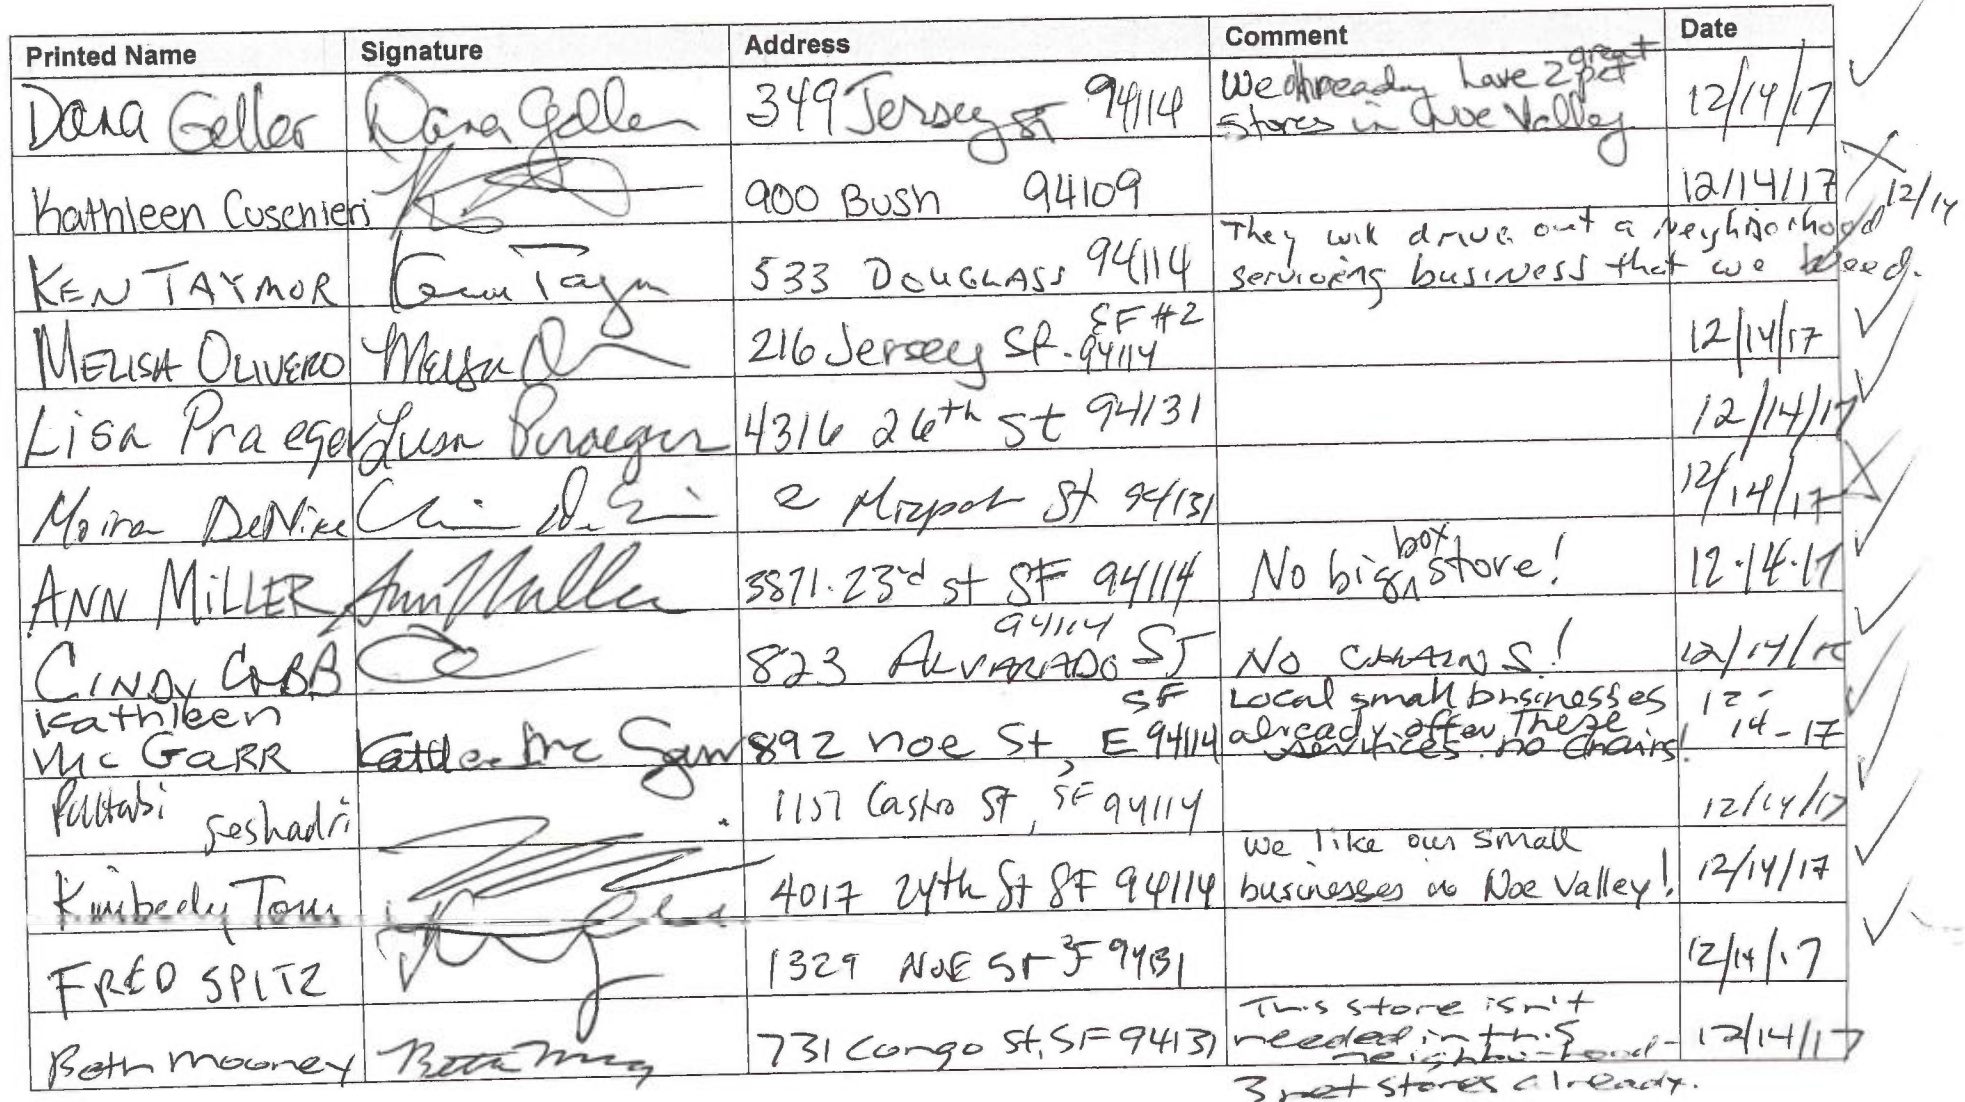 Printed Name Signature Address Comment Date
Dana Geller Dana Geller 349 Jersey St 94114 We already have 2 great pet 12/14/17
stores in Noe Valley
Kathleen Cuschieri 900 Bush 94109 12/14/17
12/14
KEN TAYMOR Ken Taym 533 DOUGLASS 94114 They will drive out a neighborhood
servicing business that we need.
MELISA OLIVERO Melisa 216 Jersey St. SF #2 94114 12/14/17
Lisa Praeger Lisa Praeger 4316 26th St 94131 12/14/17
Moira DeNike 2 Mizpah St 94131 12/14/17
ANN MILLER Ann Miller 3871 23rd St SF 94114 No big box store! 12.14.17
CINDY COBB 823 ALVARADO ST 94114 NO CHAINS! 12/14/
SF Local small businesses
Kathleen
McGARR Kathleen McGarr 892 Noe St, 94114 already offer these 12-14-17
services. no chains!
Seshadri 1157 Castro St, SF 94114 12/14/17
Kimberly Tom 4017 24th St SF 94114 we like our small 12/14/17
businesses in Noe Valley!
FRED SPITZ 1329 NOE St SF 94131 12/14/17
Beth Mooney Beth 731 Congo St, SF 94131 This store isn't 12/14/17
needed in this
neighborhood-
3 pet stores already.